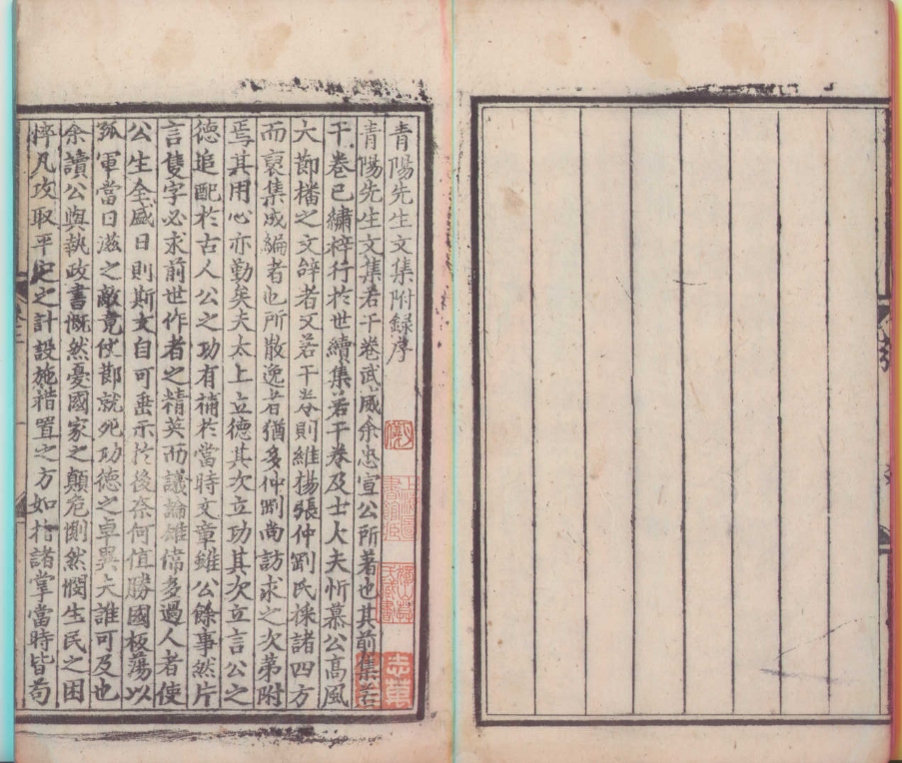 青陽先生文集附錄序
青陽先生文集若干卷武威余忠宣公所著也其前集若
干卷已繡梓行於世續集若干卷及士大夫忻慕公高風
大節播之文辞者又若干卷則維揚張仲剛氏採諸四方
而裒集成編者也所散逸者猶多仲剛尚訪求之次第附
焉其用心亦勤矣夫太上立德其次立功其次立言公之
德追配於古人公之功有補於當時文章雖公餘事然片
言隻字必求前世作者之精英而議論雄偉多過人者使
公生全盛日則斯文自可垂示於後奈何值勝國板蕩以
孤軍當日滋之敵竟仗節就死功德之卓異夫誰可及也
余讀公與執政書慨然憂國家之顛危惻然憫生民之困
悴凡攻取平定之計設施措置之方如指諸掌當時皆苟